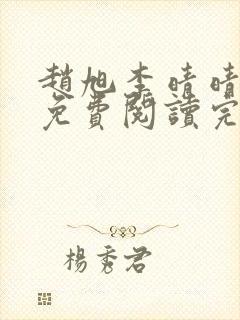 趙旭李晴晴
免費閱讀完
楊秀君